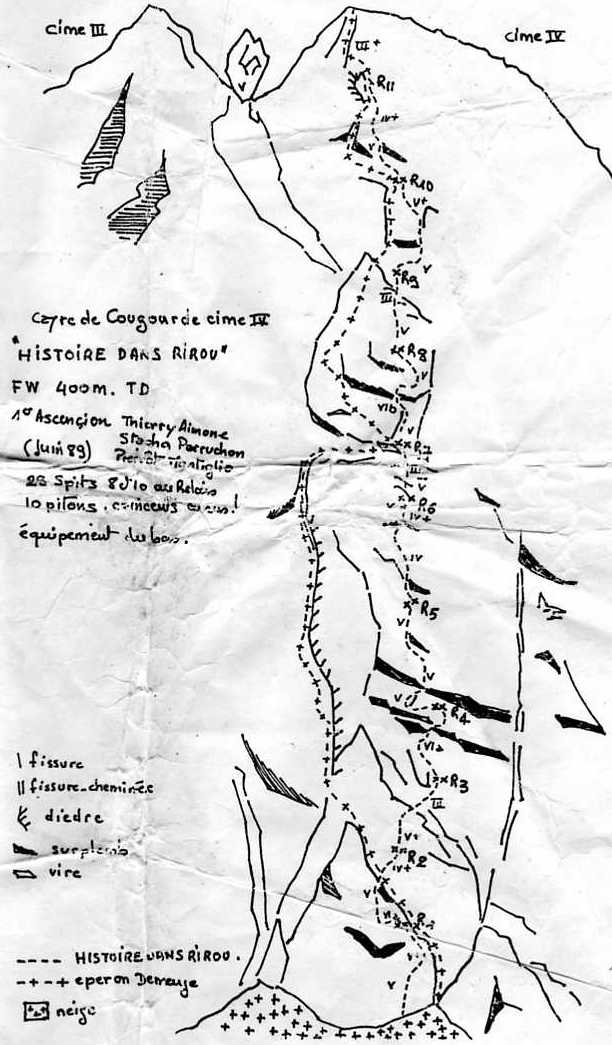 cime III
cime IV
III
R11
IV+
R10
V+
V
R9
III
V
R8
V
VIb
V
III
R6
V
IV+
IV
R5
VI
V
V
R4
VIa
R3
III
V+
R2
IV+
V
V
V
Cayre de Cougourde cime IV
"HISTOIRE DANS RIROU"
FW 400m. TD
Ascension Thierry Aimone
(Juin 89)
28 Spits 8 10 au Relais
10 pitons.
équipement du bas.
fissure
fissure-cheminée
diedre
surplomb
vire
HISTOIRE DANS RIROU.
eperon Demenge
neige